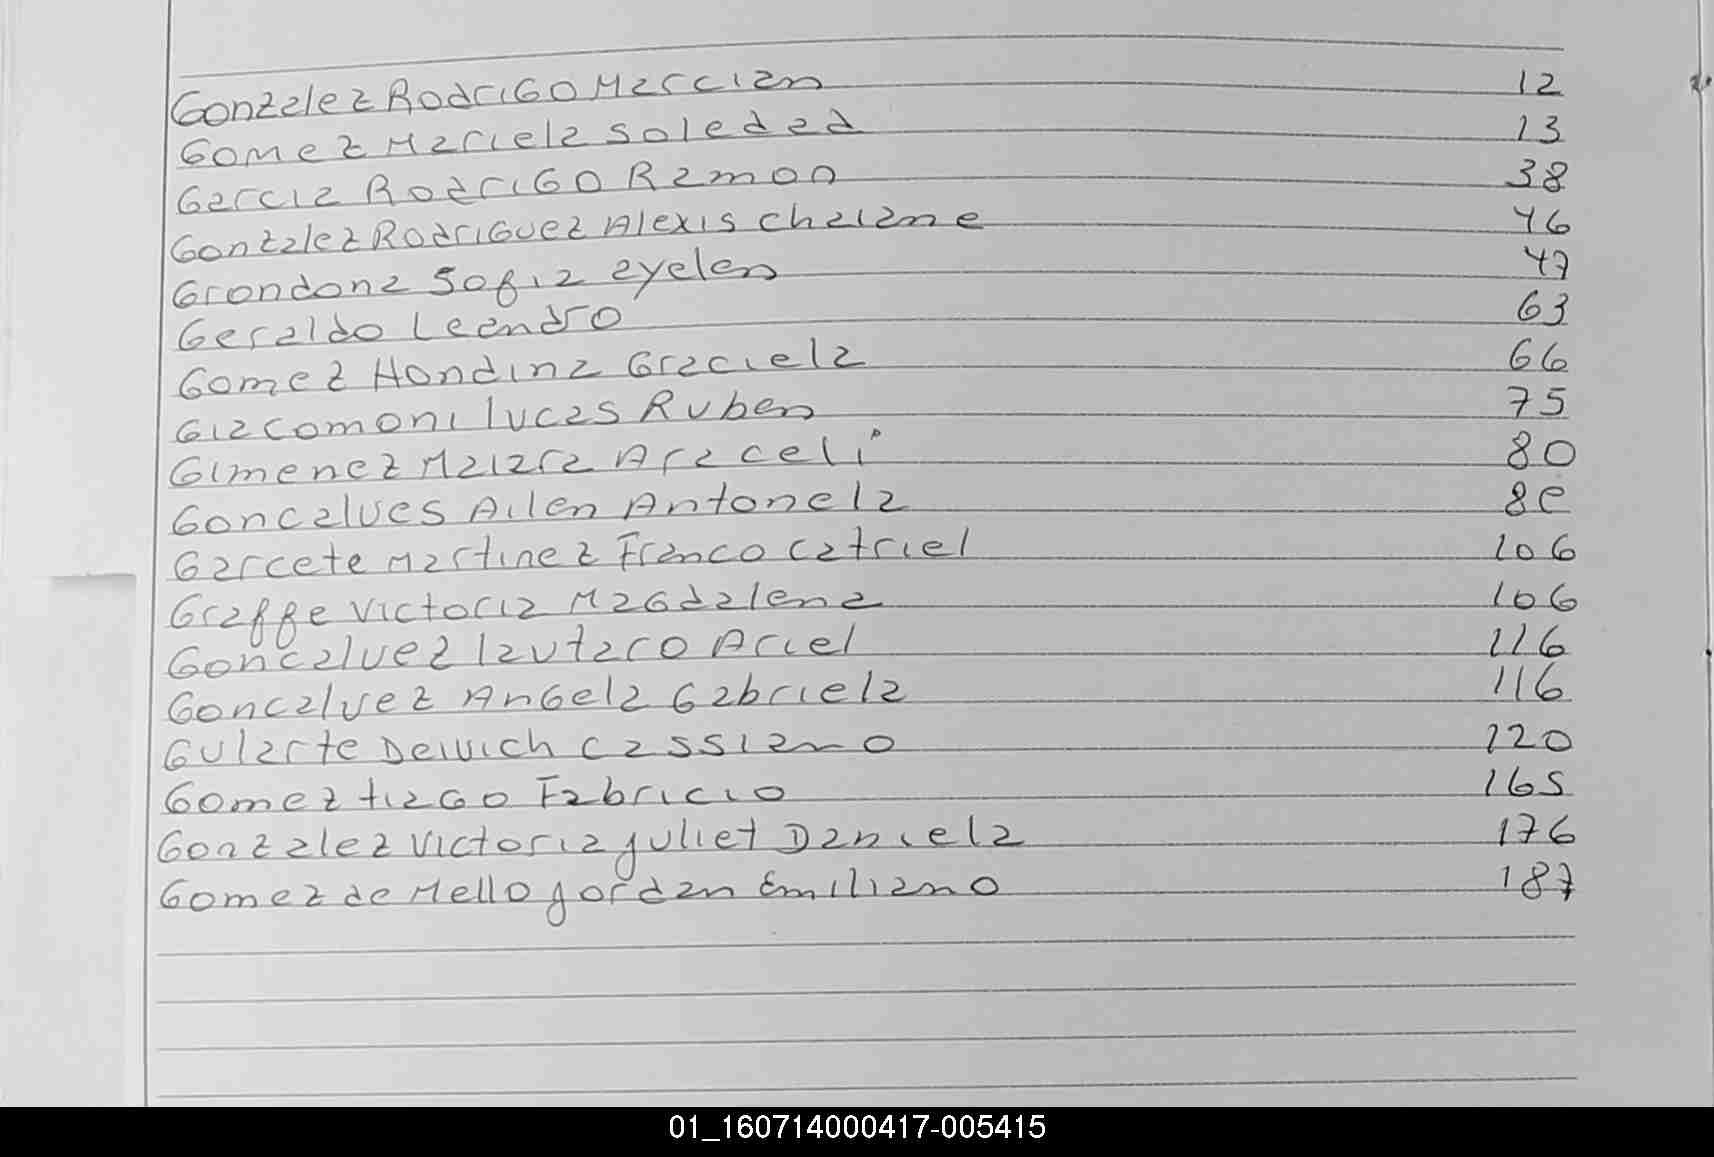 Gonzalez Rodrigo Marcian 12
Gomez Mariela Soledad 13
Garcia Rodrigo Ramon 38
Gonzalez Rodriguez Alexis Chaiane 46
Grondona Sofia ayelen 47
Geraldo Leandro 63
Gomez Hondina Graciela 66
Giacomoni lucas Ruben 75
Gimenez Maiara Araceli 80
Goncalves Ailen Antonela 80
Garcete Martinez Franco Catriel 106
Graffe Victoria Magdalena 106
Goncalvez lautaro Ariel 116
Goncalvez Angela Gabriela 116
Gularte Deivich Cassiano 120
Gomez tiago Fabricio 165
Gonzalez Victoria juliet Daniela 176
Gomez de Mello jordan Emiliano 187
01_160714000417-005415